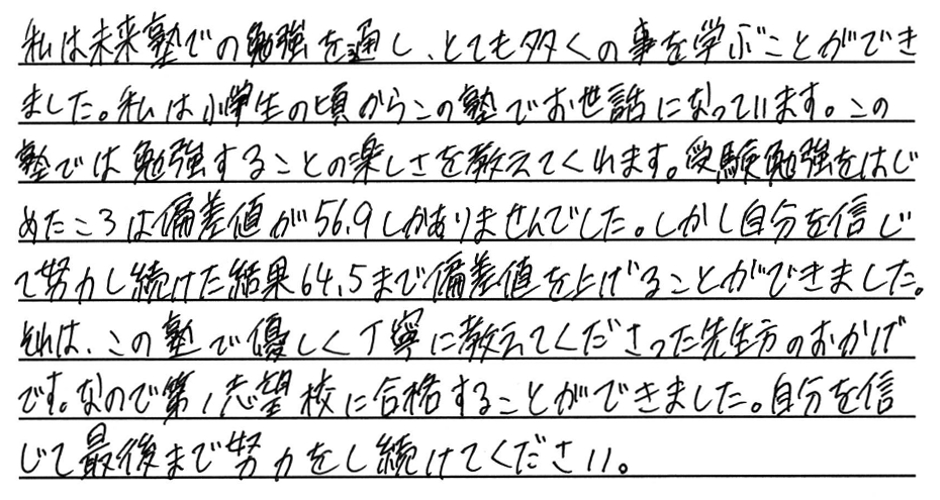 私は未来塾での勉強を通し、とても多くの事を学ぶことができ
ました。私は小学生の頃からこの塾でお世話になっています。この
塾では勉強することの楽しさを教えてくれます。受験勉強をはじ
めたころは偏差値が56.9しかありませんでした。しかし自分を信じ
て努力し続けた結果64.5まで偏差値を上げることができました。
それは、この塾で優しく丁寧に教えてくださった先生方のおかげ
です。なので第1志望校に合格することができました。自分を信
じて最後まで努力をし続けてください。